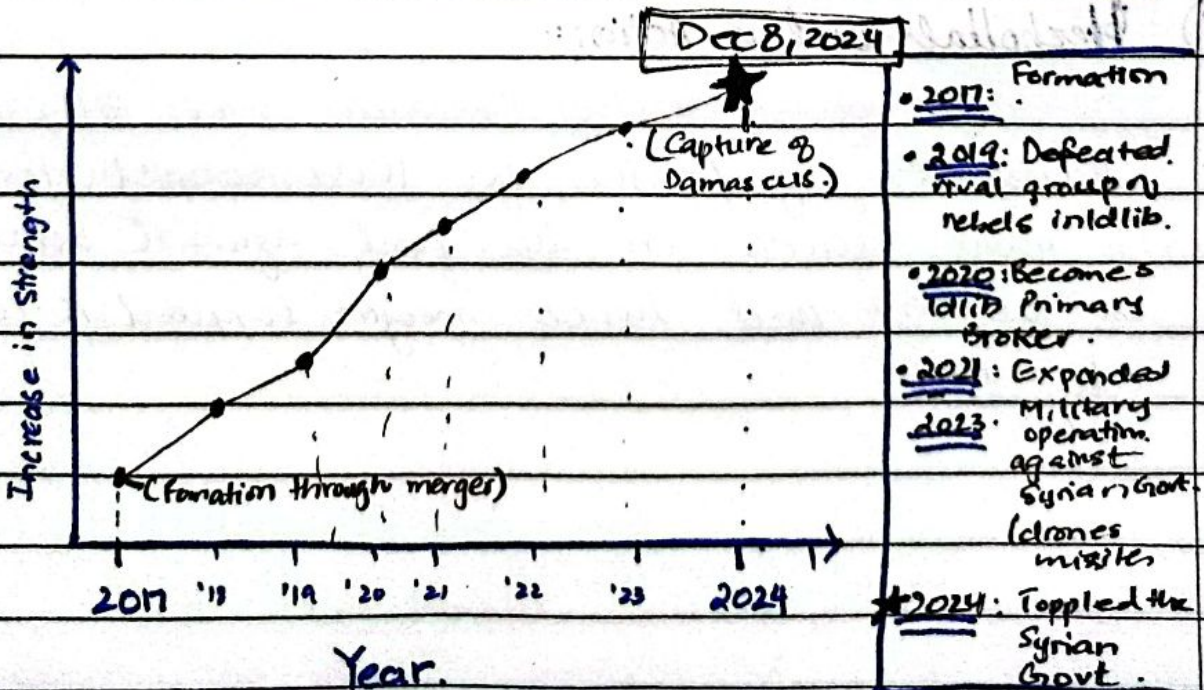 Dec 8, 2024
(Capture of
Damascus.)
Increase in Strength
(Formation through merges)
2017 '18 '19 '20 '21 '22 '23 2024
Year.
Formation
• 2017:
• 2019: Defeated
rival group of
rebels in Idlib.
• 2020: Becomes
Idlib Primary
Broker.
• 2021: Expanded
2023. Military
operation.
against
Syrian Govt.
(drones
missiles
2024: Toppled the
Syrian
Govt.